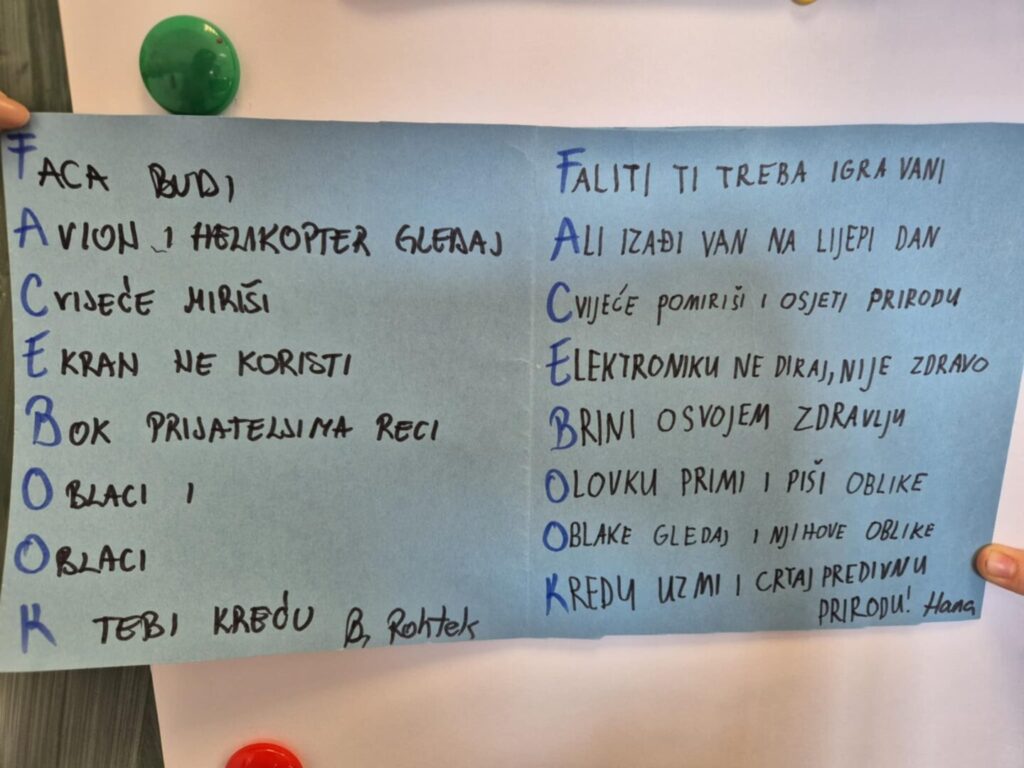 FACA BUDI
AVION I HELIKOPTER GLEDAJ
CVIJEĆE MIRIŠI
EKRAN NE KORISTI
BOK PRIJATELJIMA RECI
OBLACI I
OBLACI
K TEBI KREĆU
B, Rohtek
FALITI TI TREBA IGRA VANI
ALI IZAĐI VAN NA LIJEPI DAN
CVIJEĆE POMIRIŠI I OSJETI PRIRODU
ELEKTRONIKU NE DIRAJ, NIJE ZDRAVO
BRINI O SVOJEM ZDRAVLJU
OLOVKU PRIMI I PIŠI OBLIKE
OBLAKE GLEDAJ I NJIHOVE OBLIKE
KREDU UZMI I CRTAJ PREDIVNU
PRIRODU! Hana